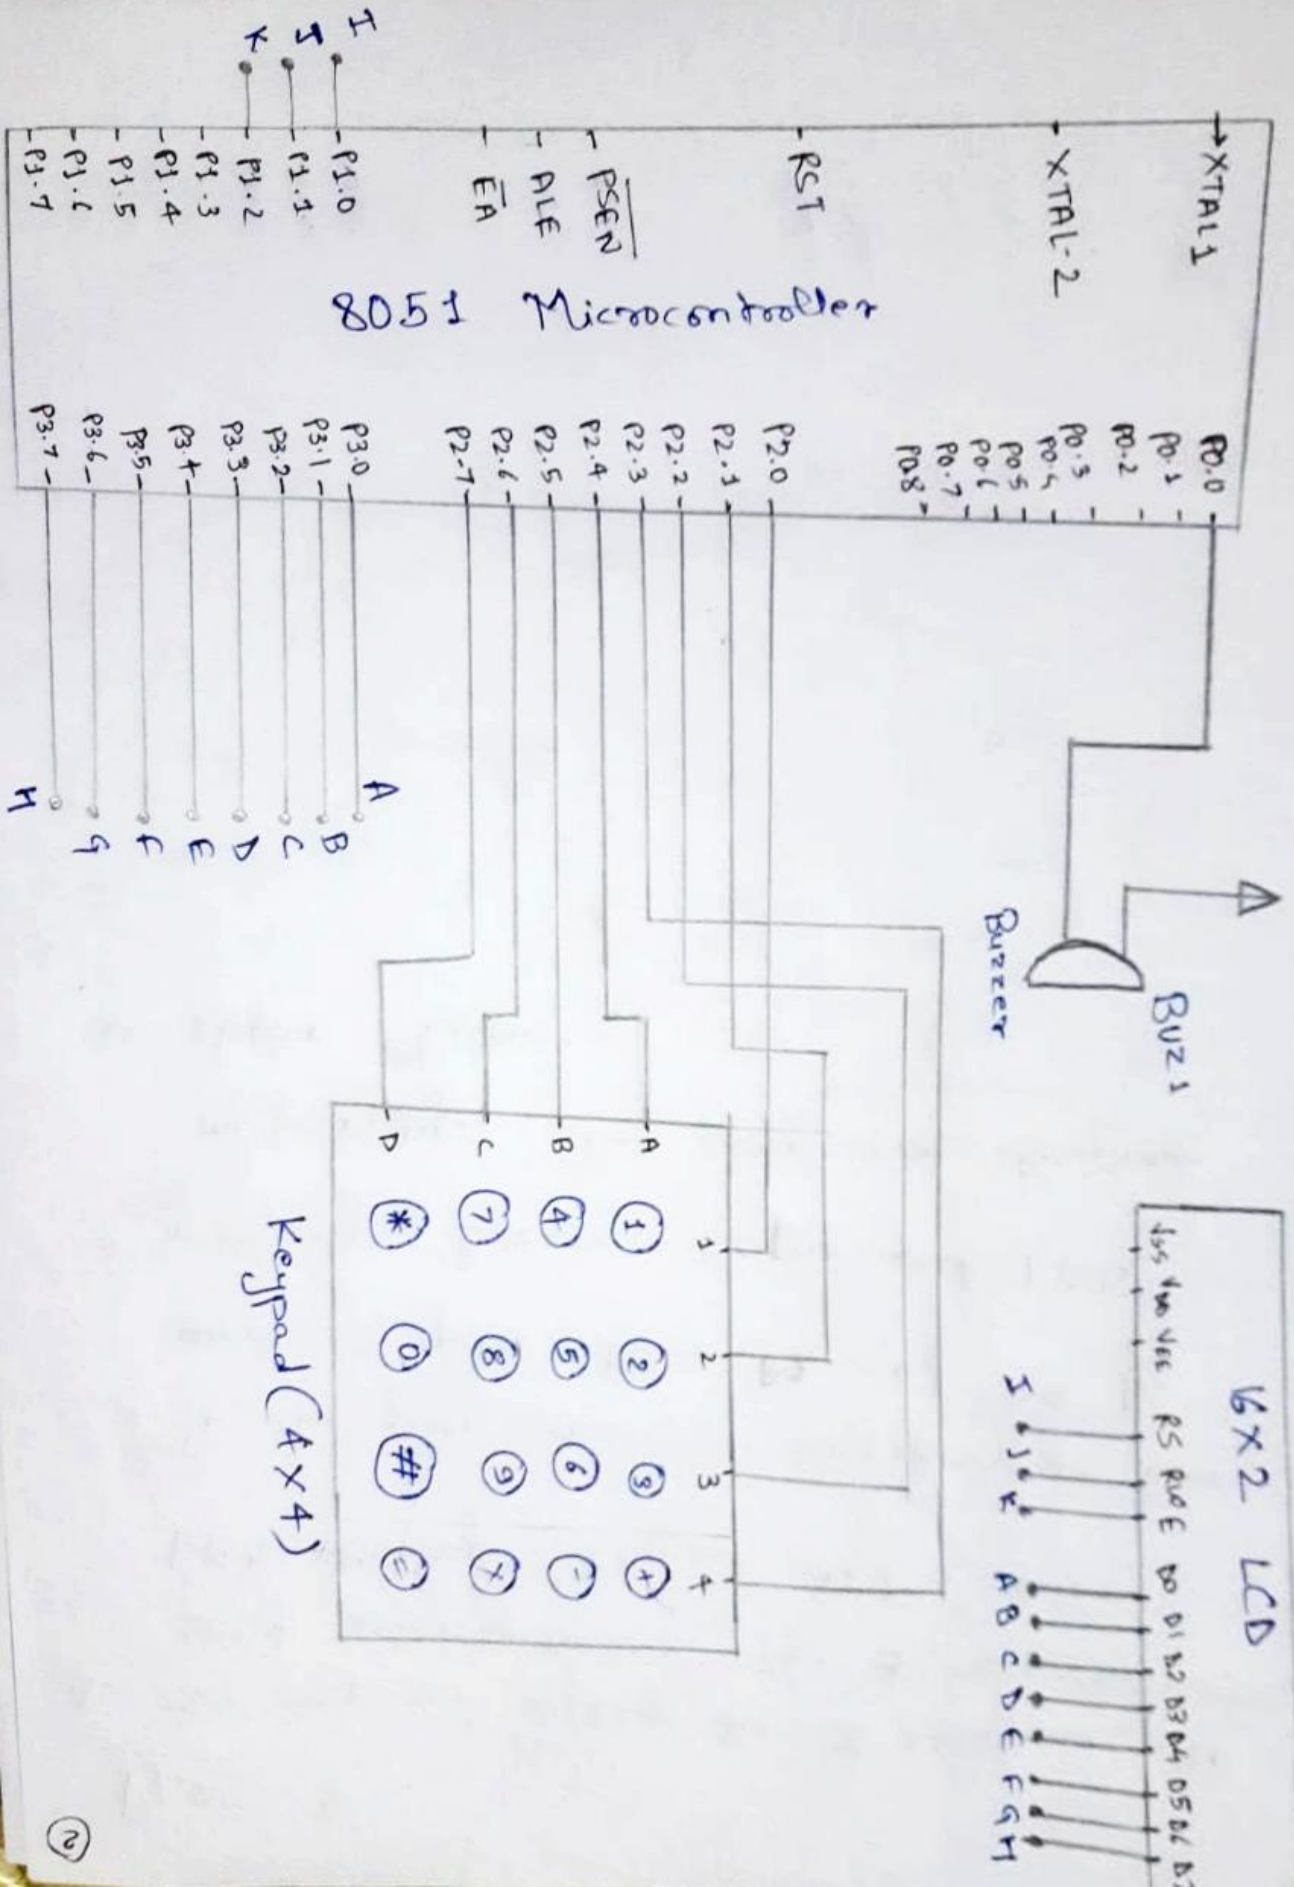 XTAL1
XTAL-2
RST
PSEN
ALE
EA
P1.0
P1.1
P1.2
P1.3
P1.4
P1.5
P1.6
P1.7
I
J
K
8051 Microcontroller
P0.0
P0.1
P0.2
P0.3
P0.4
P0.5
P0.6
P0.7
P0.8
P2.0
P2.1
P2.2
P2.3
P2.4
P2.5
P2.6
P2.7
P3.0
P3.1
P3.2
P3.3
P3.4
P3.5
P3.6
P3.7
A
B
C
D
E
F
G
H
BUZ1
Buzzer
16X2 LCD
VSS VDD VEE RS RW E D0 D1 D2 D3 D4 D5 D6 D7
I J K A B C D E F G H
1 2 3 4
A 1 2 3 +
B 4 5 6 -
C 7 8 9 ×
D * 0 # =
Keypad (4X4)
2